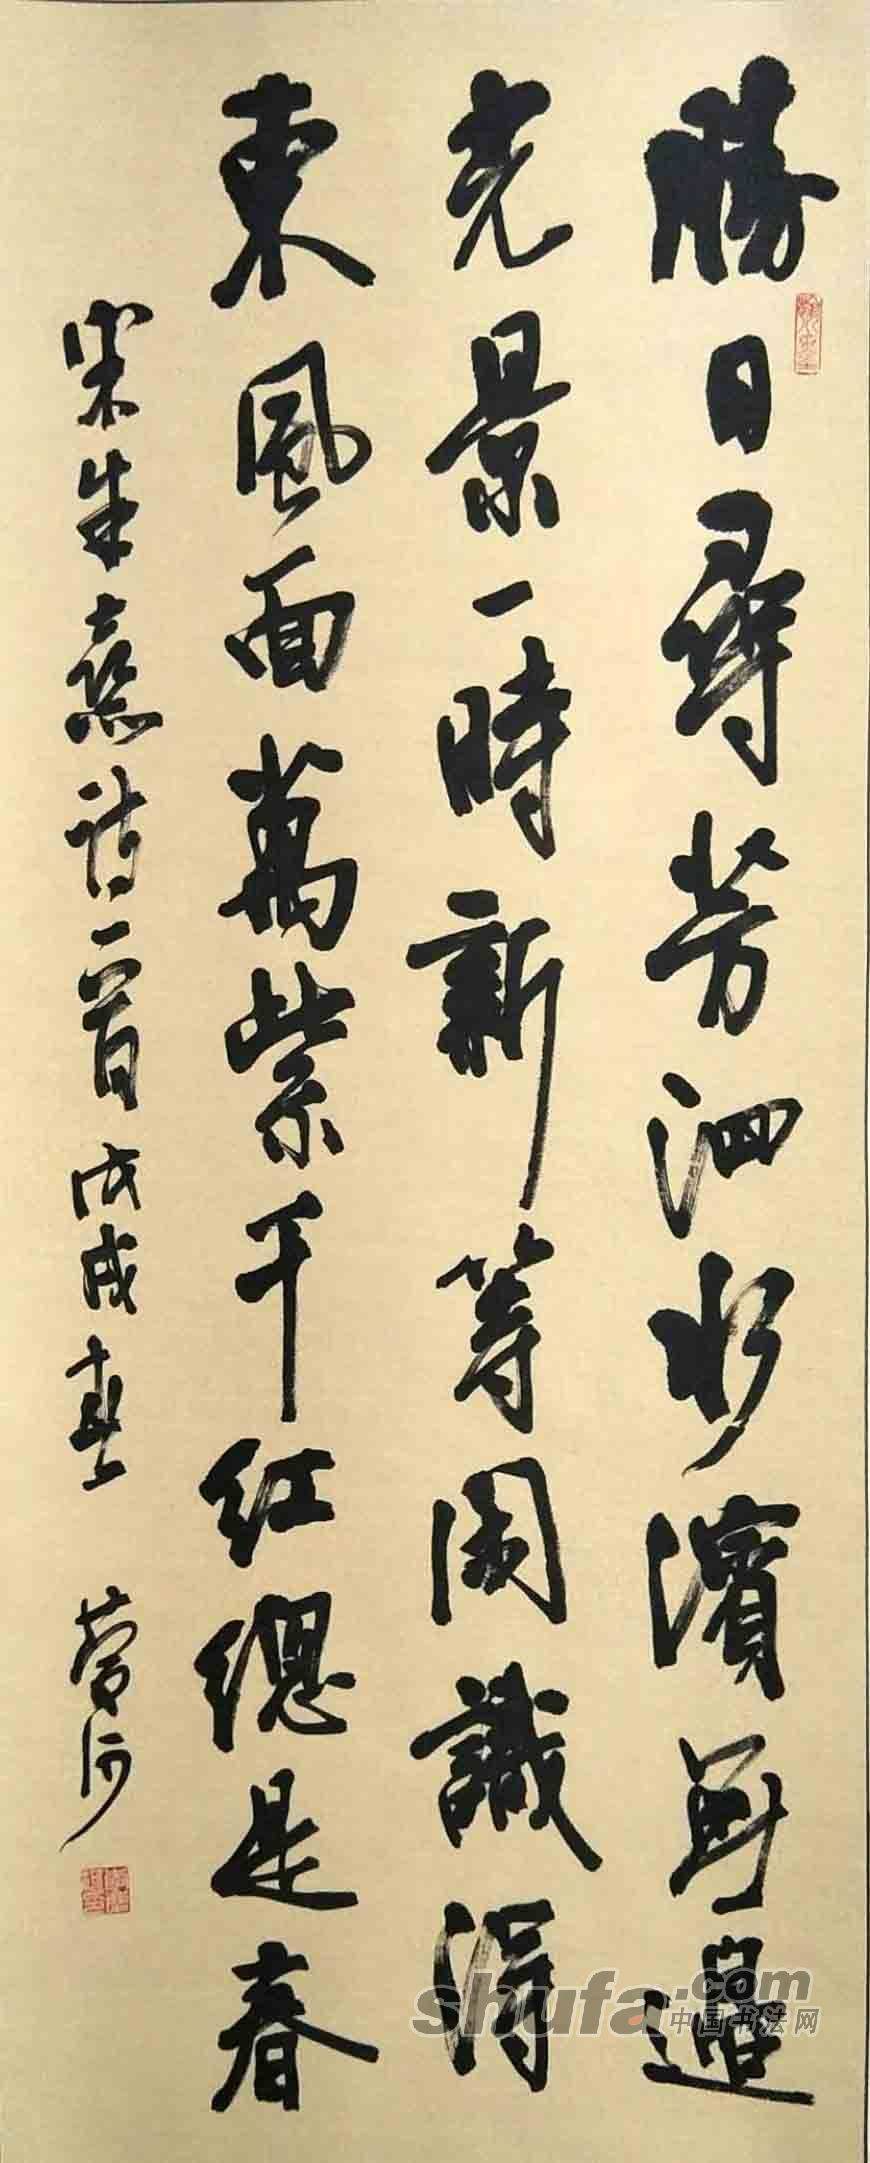 勝日尋芳泗水濱無邊
光景一時新等閑識得
東風面萬紫千紅總是春
宋朱熹詩一首 戊戌春
shufa.com
中国书法网